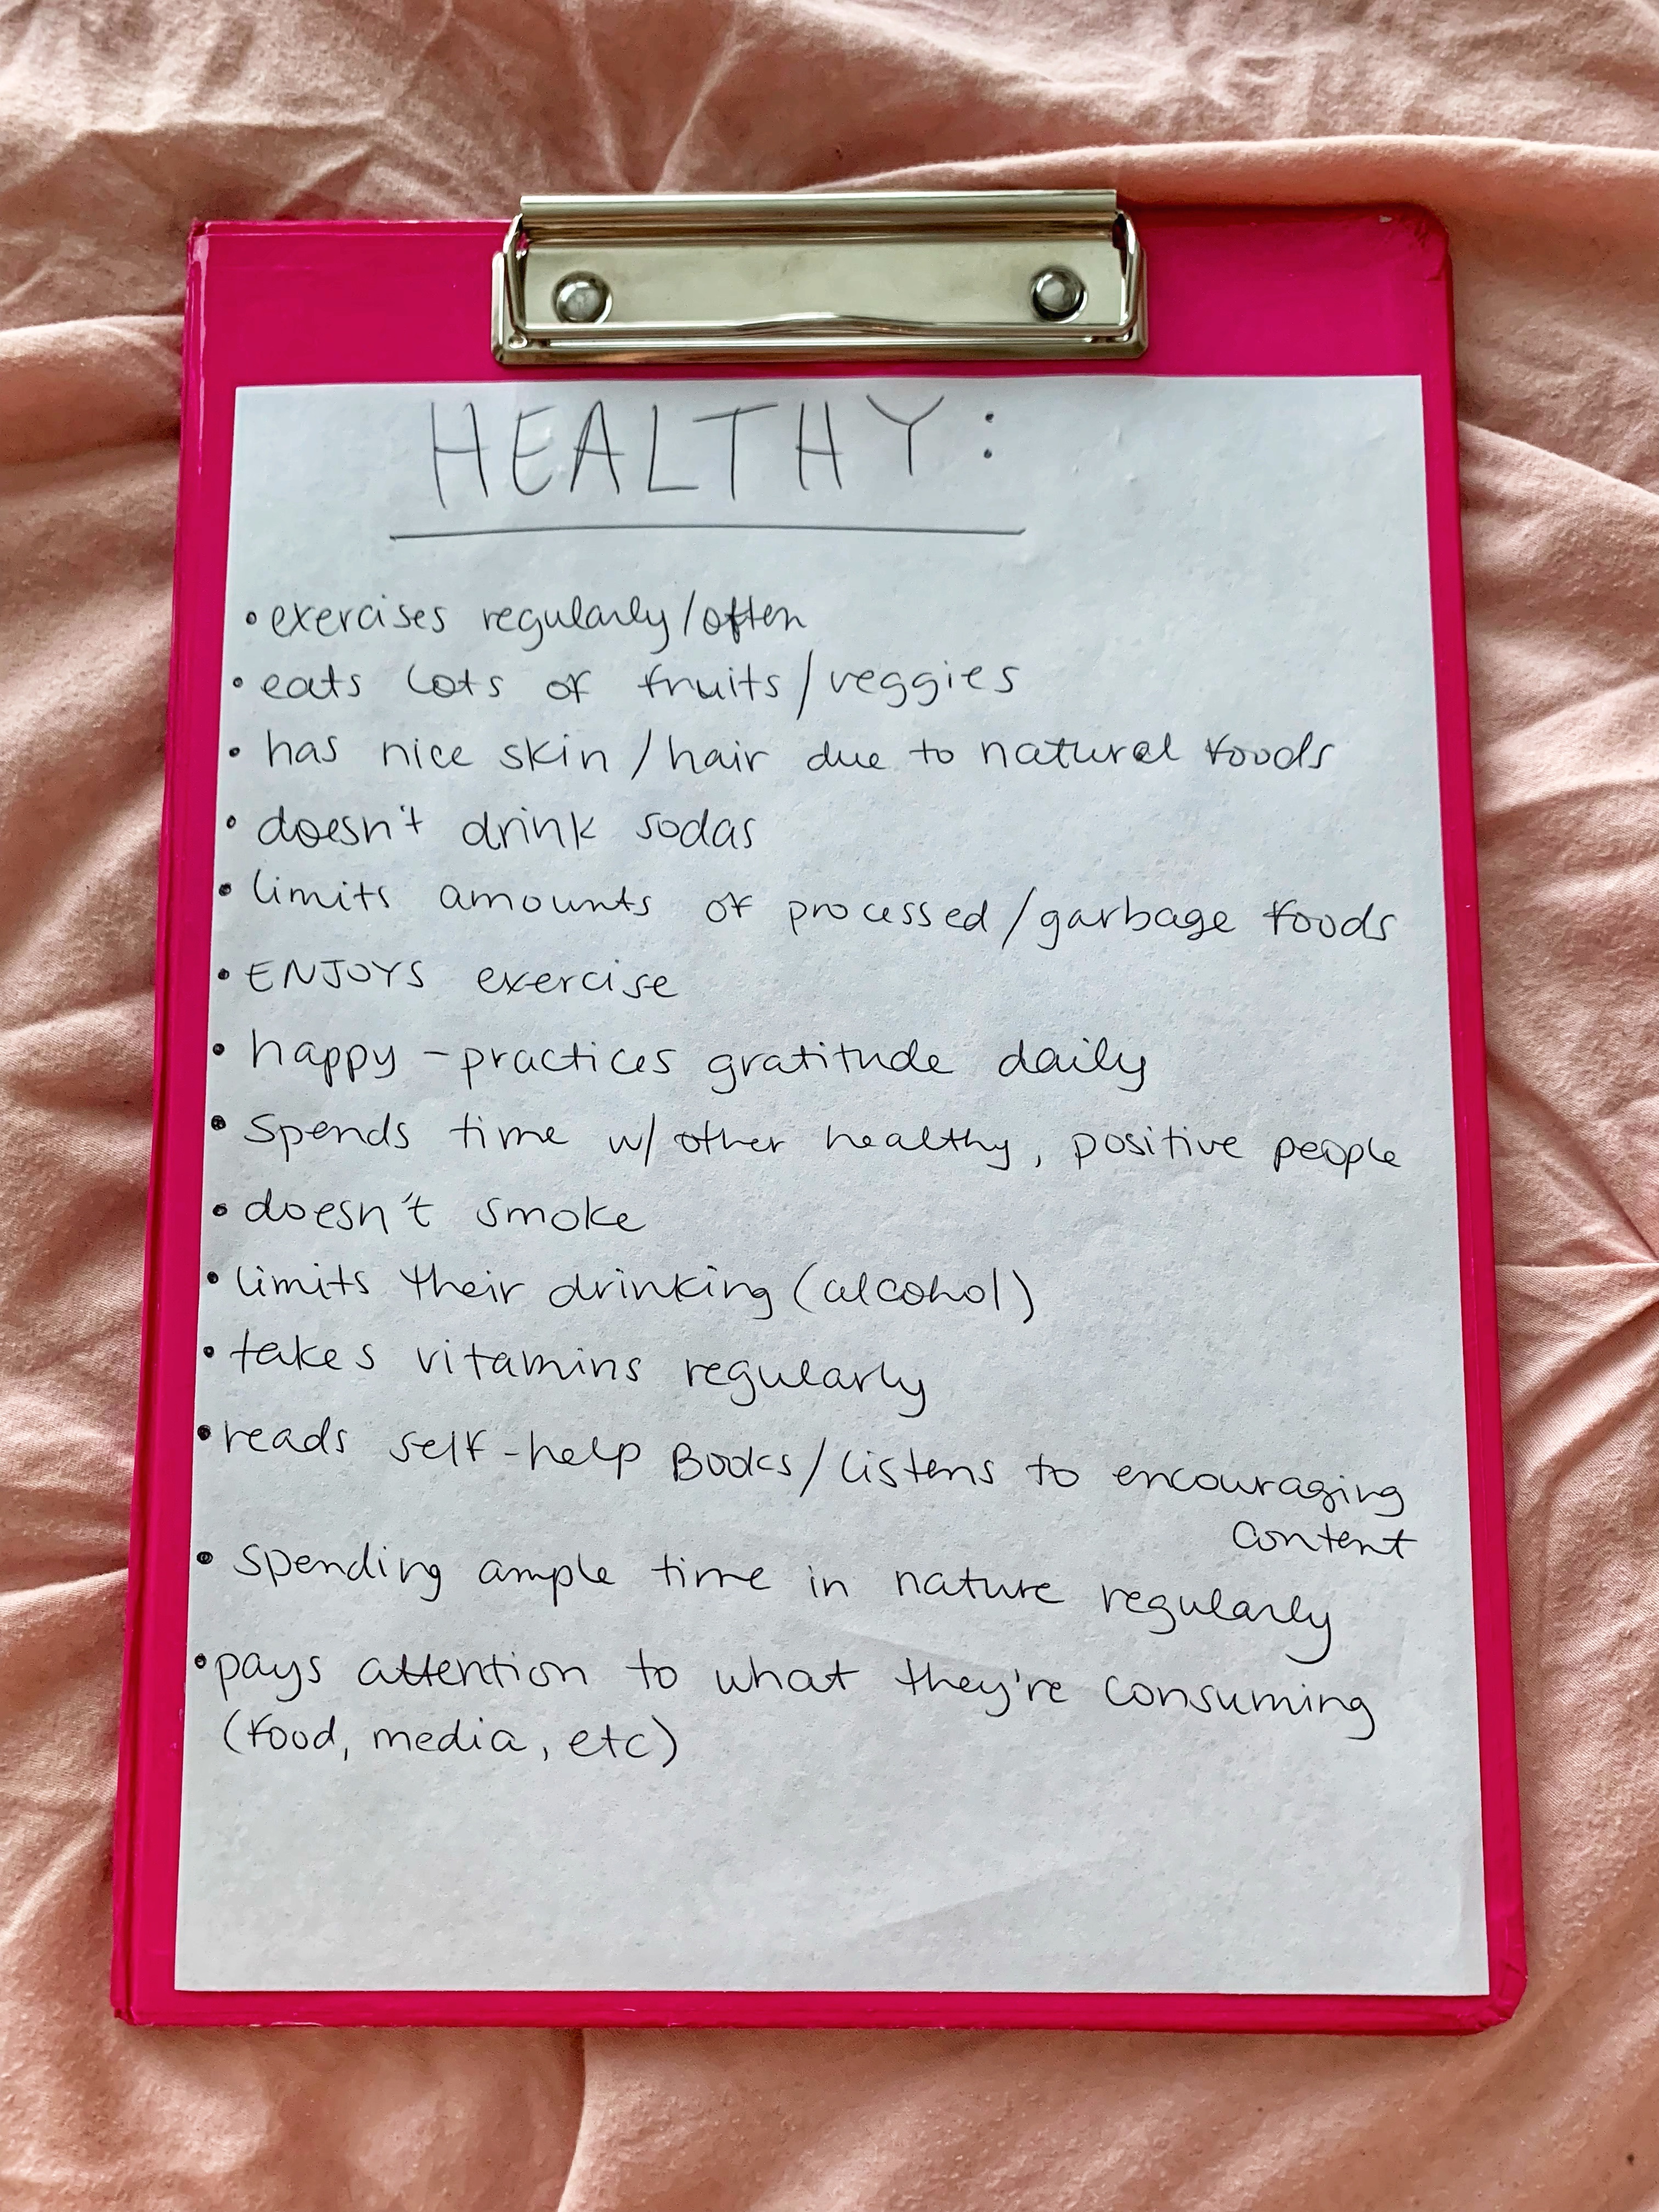 HEALTHY:
• exercises regularly/often
• eats lots of fruits/veggies
• has nice skin/hair due to natural foods
• doesn't drink sodas
• limits amounts of processed/garbage foods
• ENJOYS exercise
• happy - practices gratitude daily
• Spends time w/ other healthy, positive people
• doesn't smoke
• limits their drinking (alcohol)
• takes vitamins regularly
• reads self-help Books/listens to encouraging
content
• spending ample time in nature regularly
• pays attention to what they're consuming
(food, media, etc)